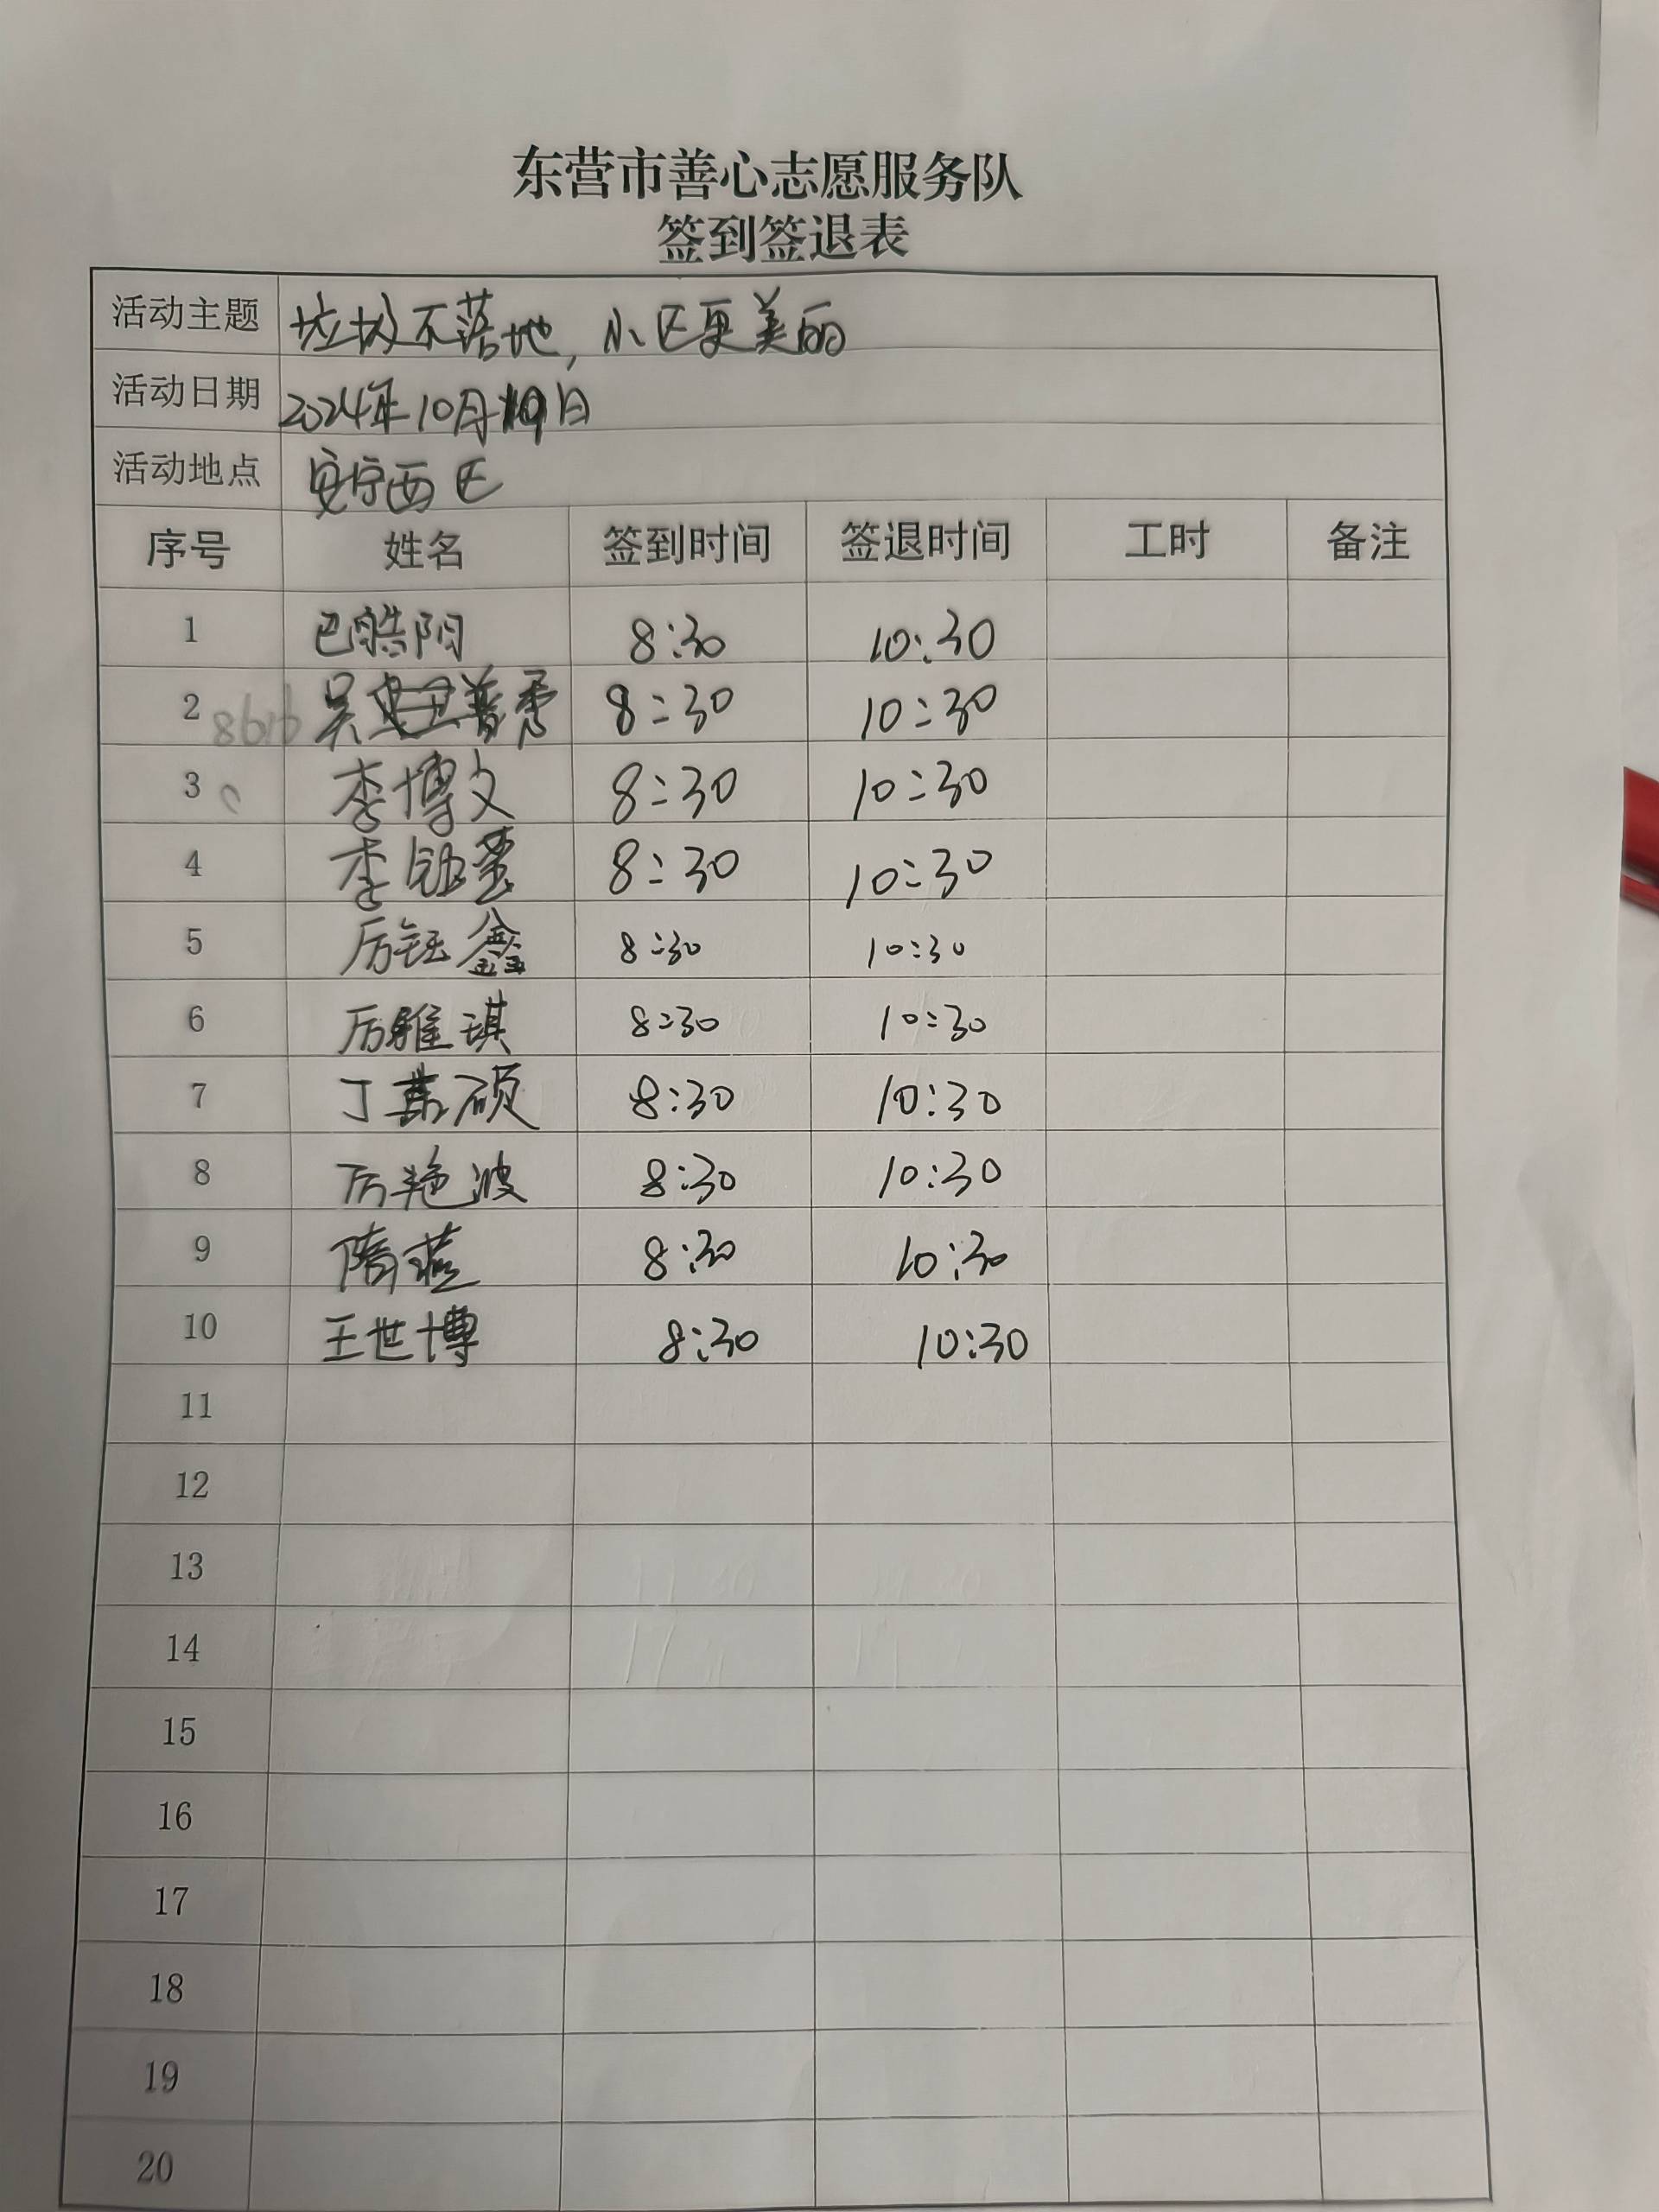 东营市善心志愿服务队
签到签退表
活动主题 垃圾不落地，小区更美丽
活动日期 2024年10月19日
活动地点 安宁西区
序号 姓名 签到时间 签退时间 工时 备注
1 巴皓阳 8:30 10:30
2 吴普秀 8:30 10:30
3 李博文 8:30 10:30
4 李 8:30 10:30
5 厉钰鑫 8:30 10:30
6 厉雅琪 8:30 10:30
7 丁硕 8:30 10:30
8 厉艳波 8:30 10:30
9 隋燕 8:30 10:30
10 王世博 8:30 10:30
11
12
13
14
15
16
17
18
19
20